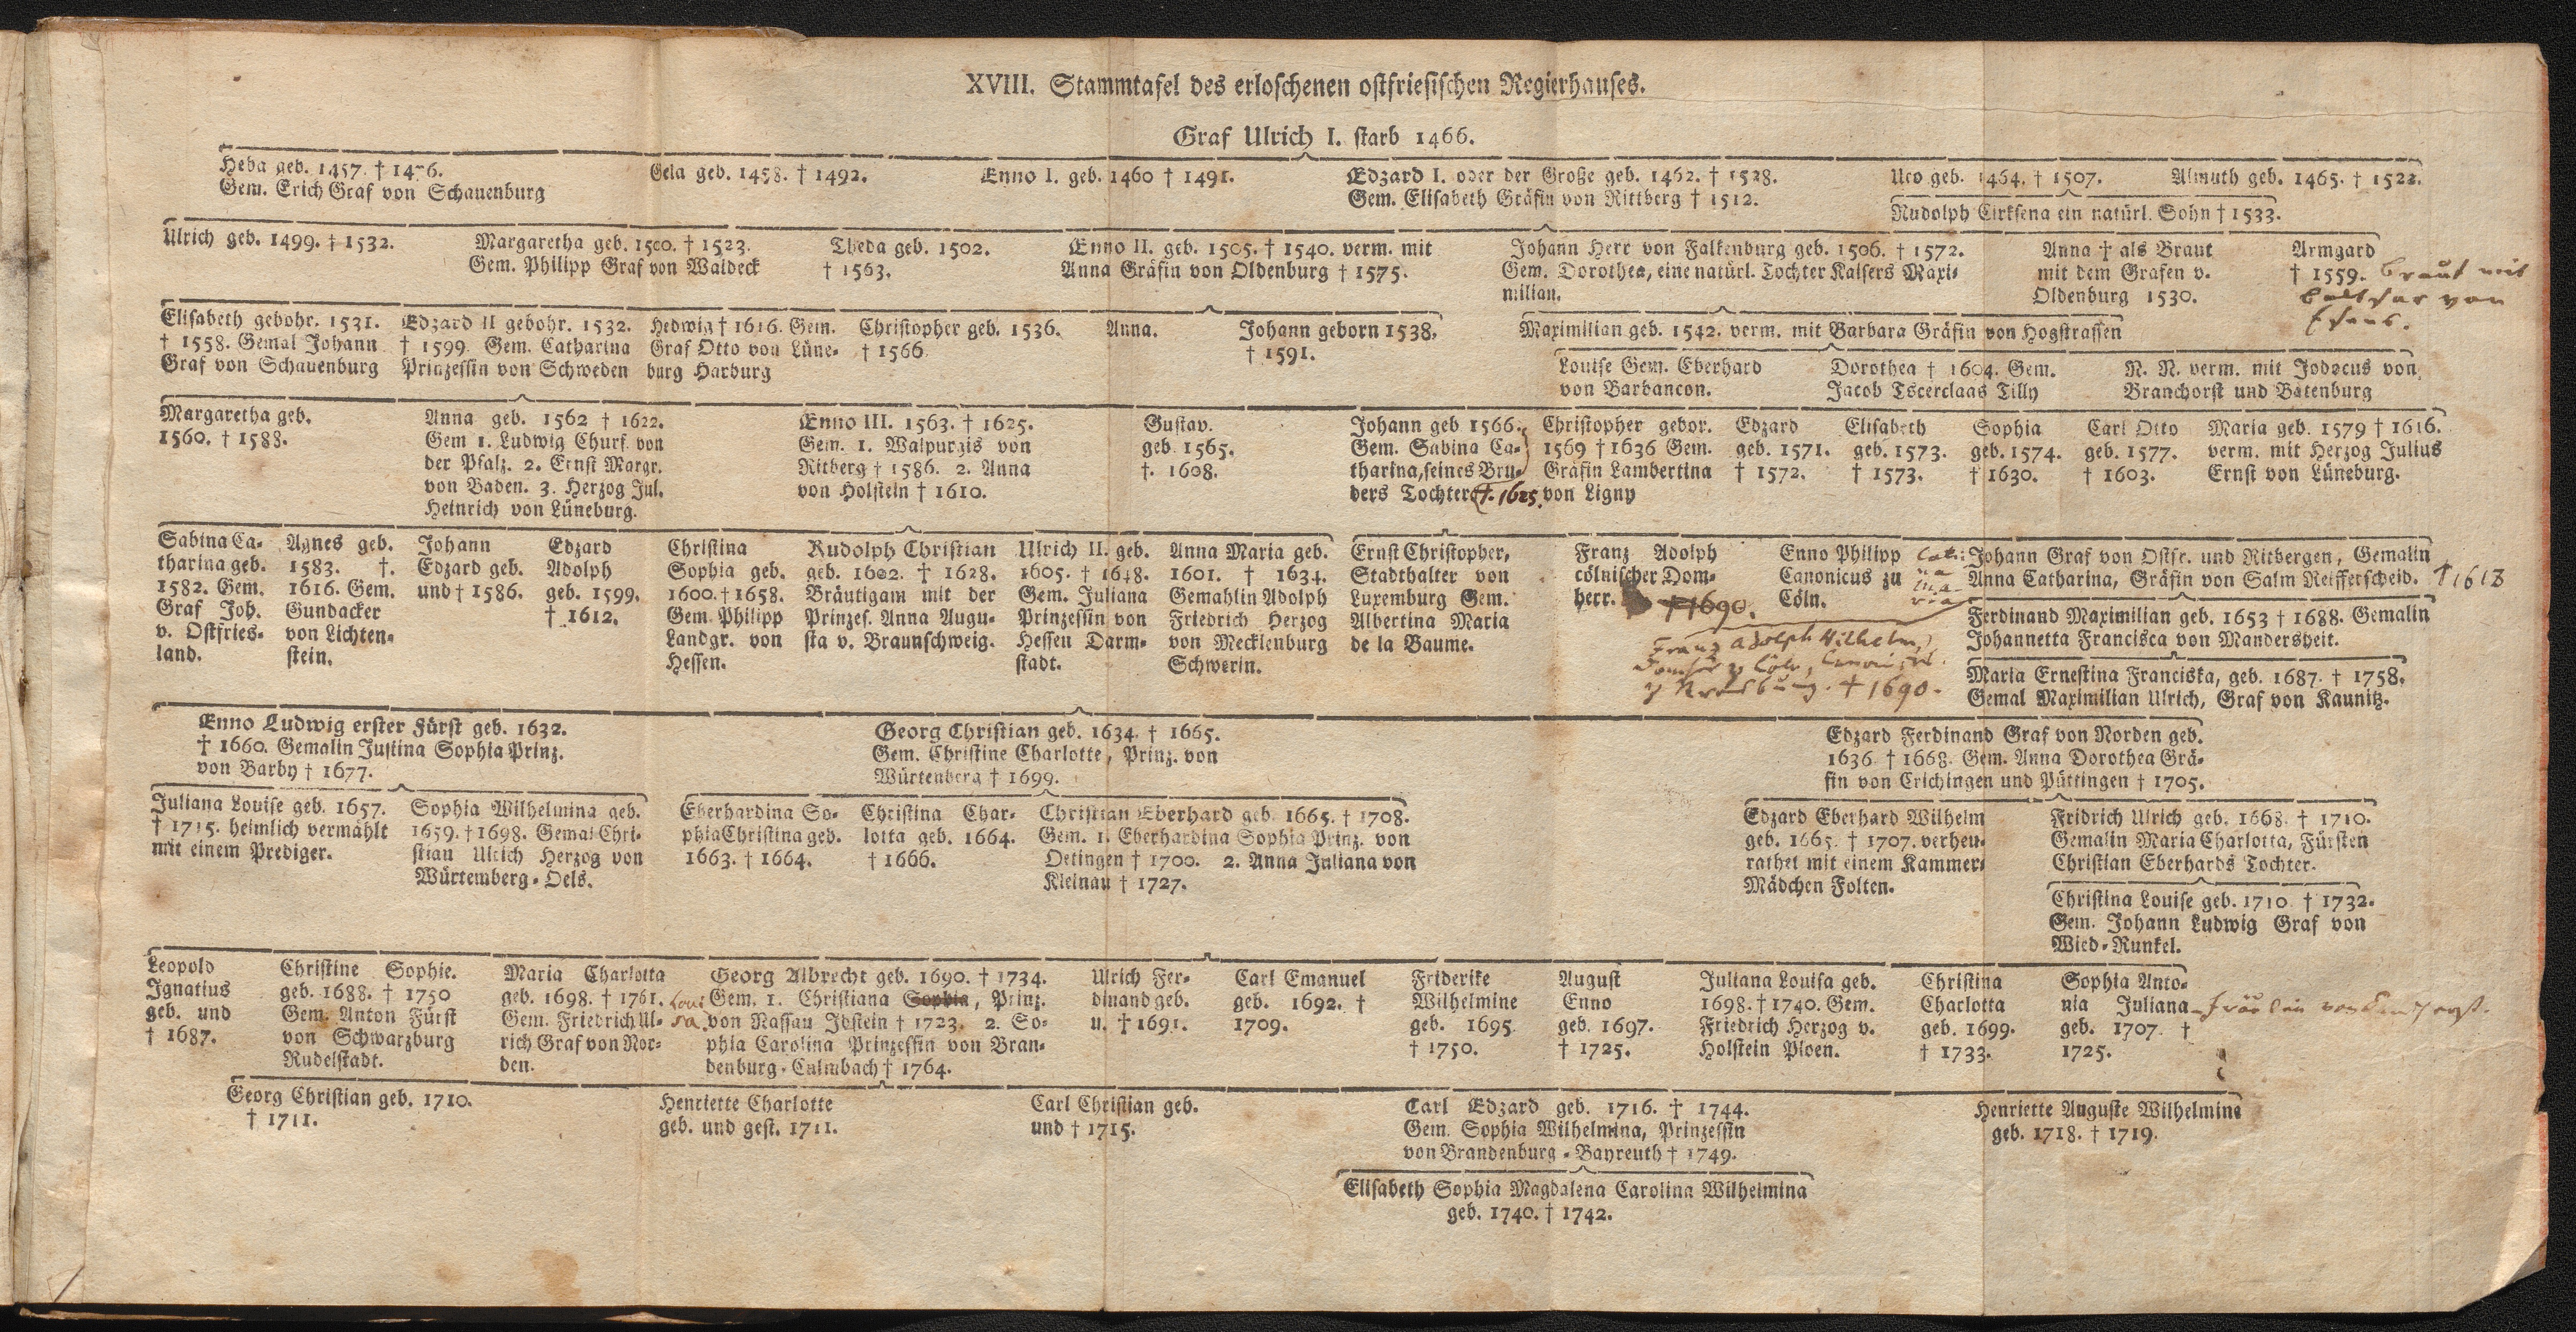 XVIII. Stammtafel des erloschenen ostfriesischen Regierhauses.
Graf Ulrich I. starb 1466.
Heba geb. 1457. † 1476.
Gem. Erich Graf von Schauenburg
Gela geb. 1458. † 1492.
Enno I. geb. 1460 † 1491.
Edzard I. oder der Große geb. 1462. † 1528.
Gem. Elisabeth Gräfin von Rittberg † 1512.
Uco geb. 1464. † 1507.
Almuth geb. 1465. † 1522.
Rudolph Cirksena ein natürl. Sohn † 1533.
Ulrich geb. 1499. † 1532.
Margaretha geb. 1500. † 1523.
Gem. Philipp Graf von Waldeck
Theda geb. 1502.
† 1563.
Enno II. geb. 1505. † 1540. verm. mit
Anna Gräfin von Oldenburg † 1575.
Johann Herr von Falkenburg geb. 1506. † 1572.
Gem. Dorothea, eine natürl. Tochter Kaisers Maxi-
milian.
Anna † als Braut
mit dem Grafen v.
Oldenburg 1530.
Armgard
† 1559. Braut mit
Balthsar von
Esens.
Elisabeth gebohr. 1531.
† 1558. Gemal Johann
Graf von Schauenburg
Edzard II gebohr. 1532.
† 1599. Gem. Catharina
Prinzessin von Schweden
Hedwig † 1616. Gem.
Graf Otto von Lüne-
burg Harburg
Christopher geb. 1536.
† 1566.
Anna.
Johann geborn 1538.
† 1591.
Maximilian geb. 1542. verm. mit Barbara Gräfin von Hogstrassen
Louise Gem. Eberhard
von Barbancon.
Dorothea † 1604. Gem.
Jacob Tscerclaas Tilly
N. N. verm. mit Jodocus von
Branchorst und Batenburg
Margaretha geb.
1560. † 1588.
Anna geb. 1562 † 1622.
Gem 1. Ludwig Churf. von
der Pfalz. 2. Ernst Margr.
von Baden. 3. Herzog Jul.
Heinrich von Lüneburg.
Enno III. 1563. † 1625.
Gem. 1. Walpurgis von
Ritberg † 1586. 2. Anna
von Holstein † 1610.
Gustav.
geb. 1565.
†. 1608.
Johann geb 1566.
Gem. Sabina Ca-
tharina, seines Bru-
ders Tochter †. 1625.
Christopher gebor.
1569 † 1636 Gem.
Gräfin Lambertina
von Ligny
Edzard
geb. 1571.
† 1572.
Elisabeth
geb. 1573.
† 1573.
Sophia
geb. 1574.
† 1630.
Carl Otto
geb. 1577.
† 1603.
Maria geb. 1579 † 1616.
verm. mit Herzog Julius
Ernst von Lüneburg.
Sabina Ca-
tharina geb.
1582. Gem.
Graf Joh.
v. Ostfries-
land.
Agnes geb.
1583. †.
1616. Gem.
Gundacker
von Lichten-
stein.
Johann
Edzard geb.
und † 1586.
Edzard
Adolph
geb. 1599.
† 1612.
Christina
Sophia geb.
1600. † 1658.
Gem. Philipp
Landgr. von
Hessen.
Rudolph Christian
geb. 1602. † 1628.
Bräutigam mit der
Prinzes. Anna Augu-
sta v. Braunschweig.
Ulrich II. geb.
1605. † 1648.
Gem. Juliana
Prinzessin von
Hessen Darm-
stadt.
Anna Maria geb.
1601. † 1634.
Gemahlin Adolph
Friedrich Herzog
von Mecklenburg
Schwerin.
Ernst Christopher,
Stadthalter von
Luxemburg Gem.
Albertina Maria
de la Baume.
Franz Adolph
cölnischer Dom-
herr. † 1690.
Franz Adolph Wilhelm,
† 1690.
Enno Philipp
Canonicus zu
Cöln.
Johann Graf von Ostfr. und Ritbergen, Gemalin
Anna Catharina, Gräfin von Salm Reifferscheid.
Ferdinand Maximilian geb. 1653 † 1688. Gemalin
Johannetta Francisca von Mandersheit.
Maria Ernestina Franciska, geb. 1687. † 1758.
Gemal Maximilian Ulrich, Graf von Kaunitz.
Enno Ludwig erster Fürst geb. 1632.
† 1660. Gemalin Justina Sophia Prinz.
von Barby † 1677.
Georg Christian geb. 1634. † 1665.
Gem. Christine Charlotte, Prinz. von
Würtenberg † 1699.
Edzard Ferdinand Graf von Norden geb.
1636. † 1668. Gem. Anna Dorothea Grä-
fin von Crichingen und Püttingen † 1705.
Juliana Louise geb. 1657.
† 1715. heimlich vermählt
mit einem Prediger.
Sophia Wilhelmina geb.
1659. † 1698. Gemal Chri-
stian Ulrich Herzog von
Würtemberg-Oels.
Eberhardina So-
phia Christina geb.
1663. † 1664.
Christina Char-
lotta geb. 1664.
† 1666.
Christian Eberhard geb. 1665. † 1708.
Gem. 1. Eberhardina Sophia Prinz. von
Oetingen † 1700. 2. Anna Juliana von
Kleinau † 1727.
Edzard Eberhard Wilhelm
geb. 1665. † 1707. verheu-
rathet mit einem Kammer-
Mädchen Folten.
Fridrich Ulrich geb. 1668. † 1710.
Gemalin Maria Charlotta, Fürsten
Christian Eberhards Tochter.
Christina Louise geb. 1710. † 1732.
Gem. Johann Ludwig Graf von
Wied-Runkel.
Leopold
Ignatius
geb. und
† 1687.
Christine Sophie.
geb. 1688. † 1750
Gem. Anton Fürst
von Schwarzburg
Rudelstadt.
Maria Charlotta
geb. 1698. † 1761.
Gem. Friedrich Ul-
rich Graf von Nor-
den.
Georg Albrecht geb. 1690. † 1734.
Loui Gem. 1. Christiana Sophia, Prinz.
sa von Nassau Idstein † 1723. 2. So-
phia Carolina Prinzessin von Bran-
denburg-Culmbach † 1764.
Ulrich Fer-
dinand geb.
u. † 1691.
Carl Emanuel
geb. 1692. †
1709.
Friderike
Wilhelmine
geb. 1695.
† 1750.
August
Enno
geb. 1697.
† 1725.
Juliana Louisa geb.
1698. † 1740. Gem.
Friedrich Herzog v.
Holstein Ploen.
Christina
Charlotta
geb. 1699.
† 1733.
Sophia Anto-
nia Juliana
geb. 1707. †
1725.
Georg Christian geb. 1710.
† 1711.
Henriette Charlotte
geb. und gest. 1711.
Carl Christian geb.
und † 1715.
Carl Edzard geb. 1716. † 1744.
Gem. Sophia Wilhelmina, Prinzessin
von Brandenburg-Bayreuth † 1749.
Henriette Auguste Wilhelmine
geb. 1718. † 1719.
Elisabeth Sophia Magdalena Carolina Wilhelmina
geb. 1740. † 1742.